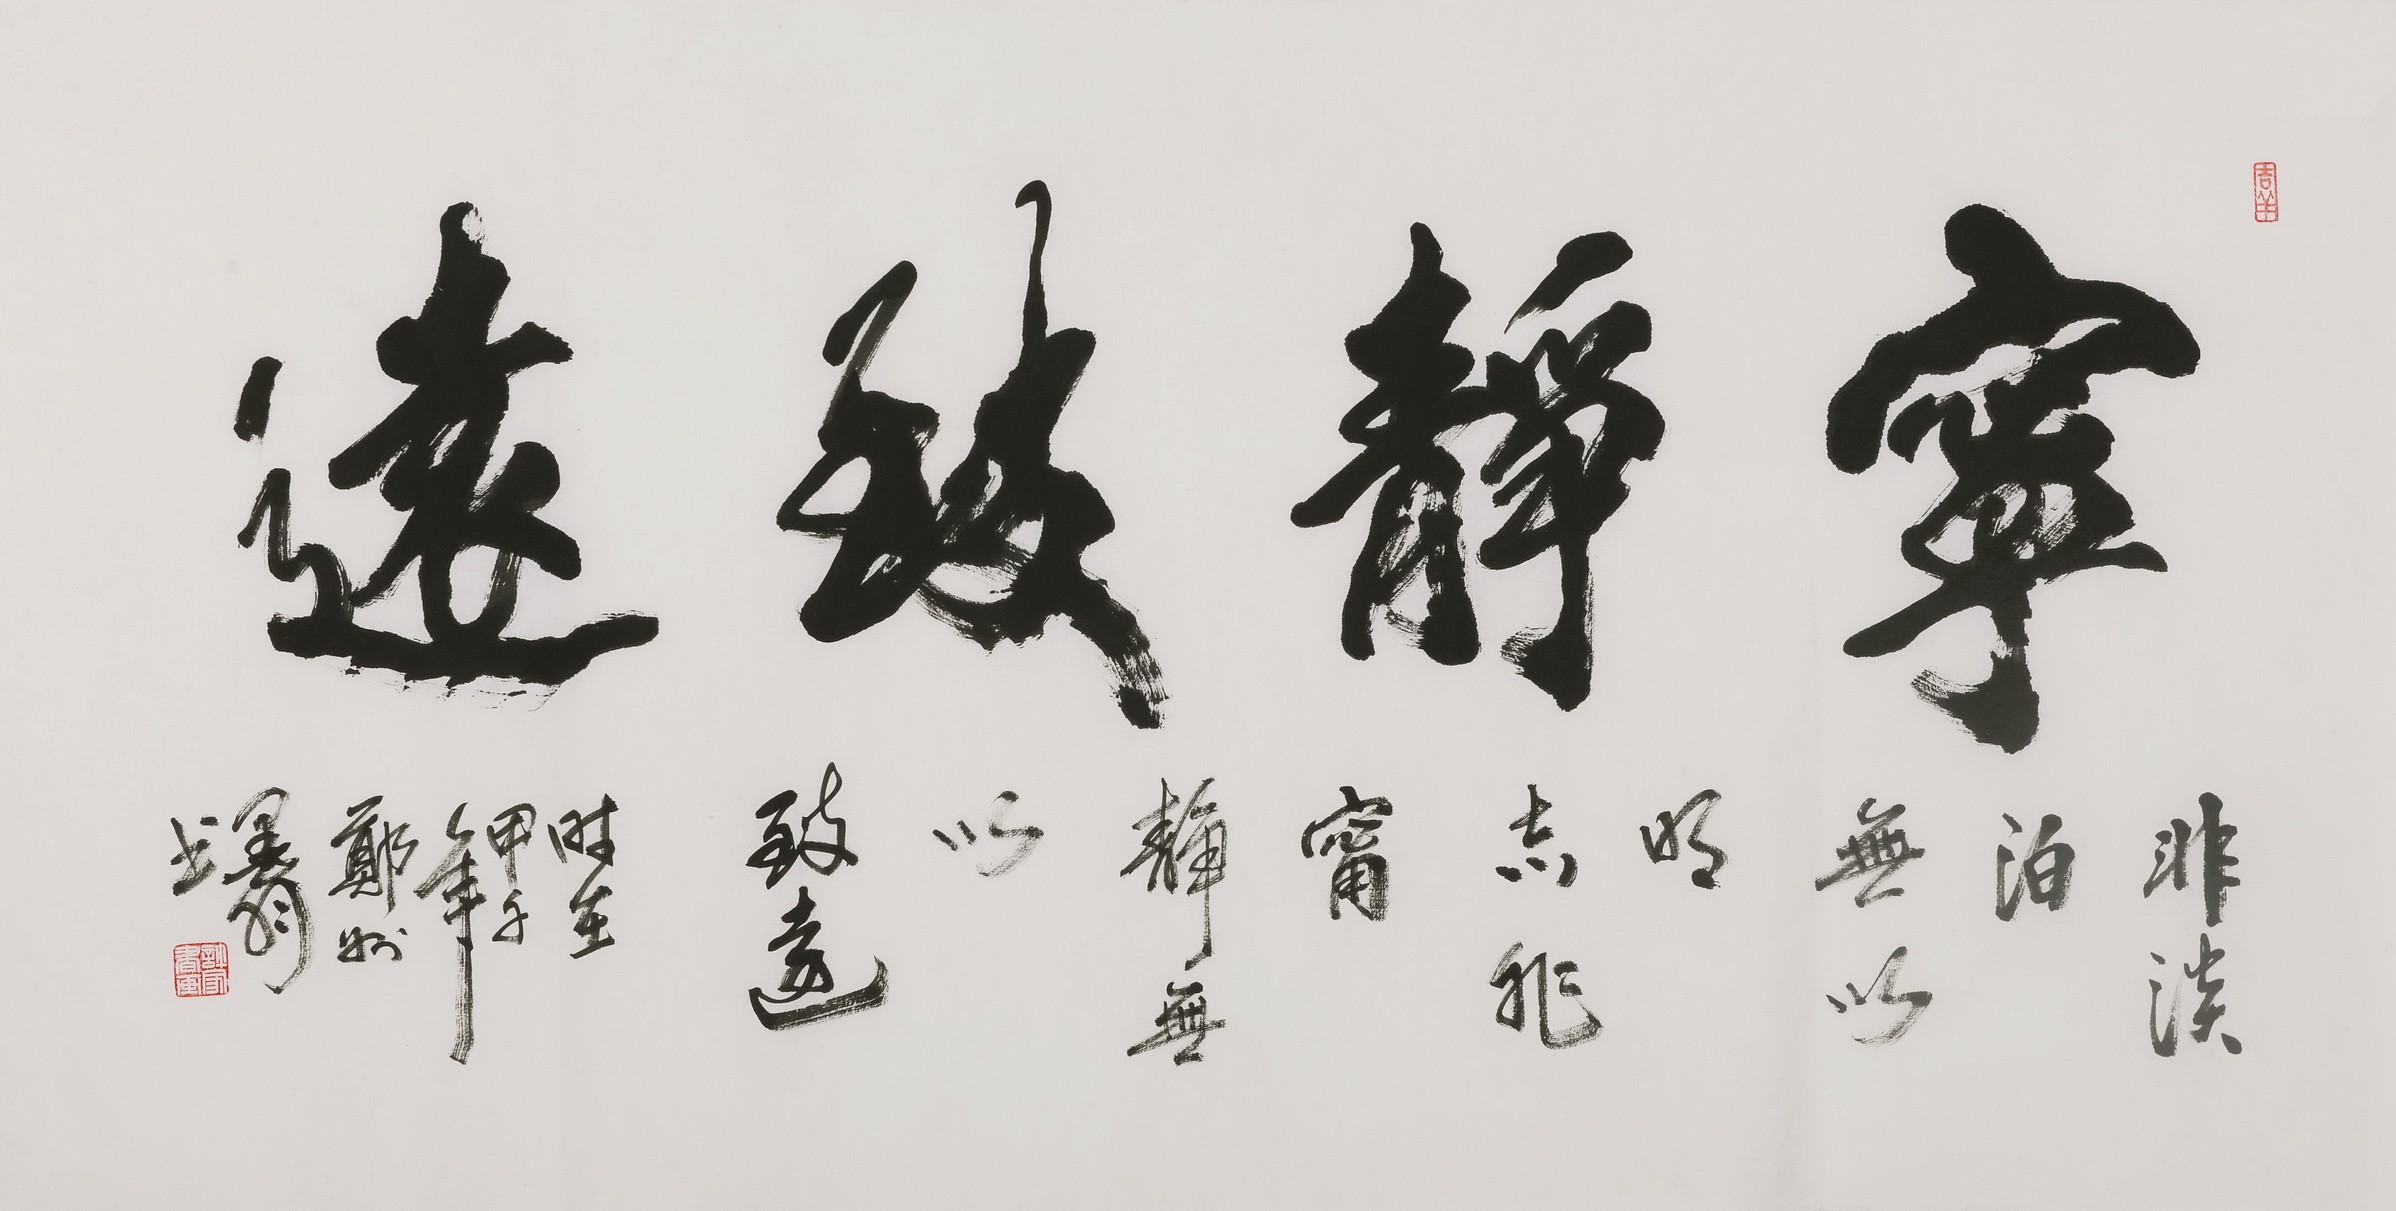 寧靜致遠
非淡
泊
無以
明
志非
甯
靜無
以
致遠
時在
甲午
年
鄭州
墨翁
書
吉羊